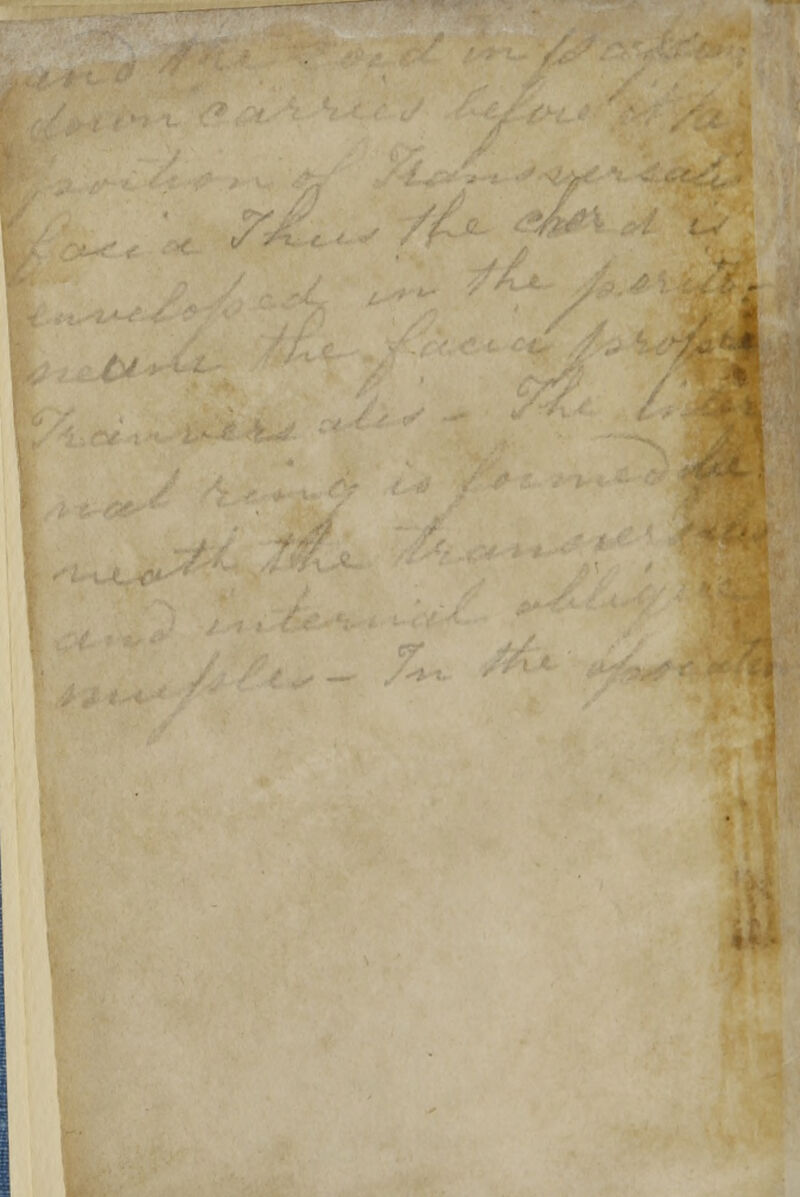 and the cord in passing
down carries before it a
portion of Transversalis
facia Thus the chord is
enveloped in the perito-
neum the facia propria
Tranversalis - The inter
nal ring is formed be
neath the transversus
and internal oblique
mussles - In the